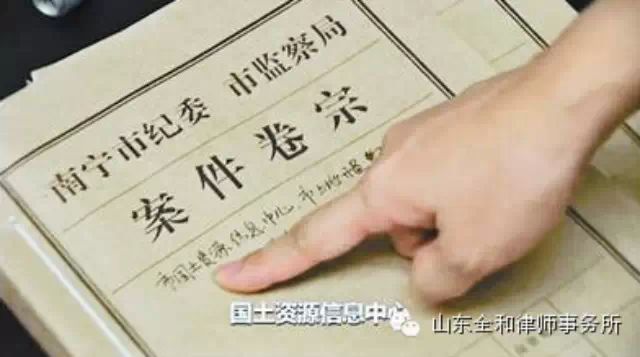 南宁市纪委 市监察局
案件卷宗
市国土资源信息中心、市土地开
国土资源信息中心
山东全和律师事务所